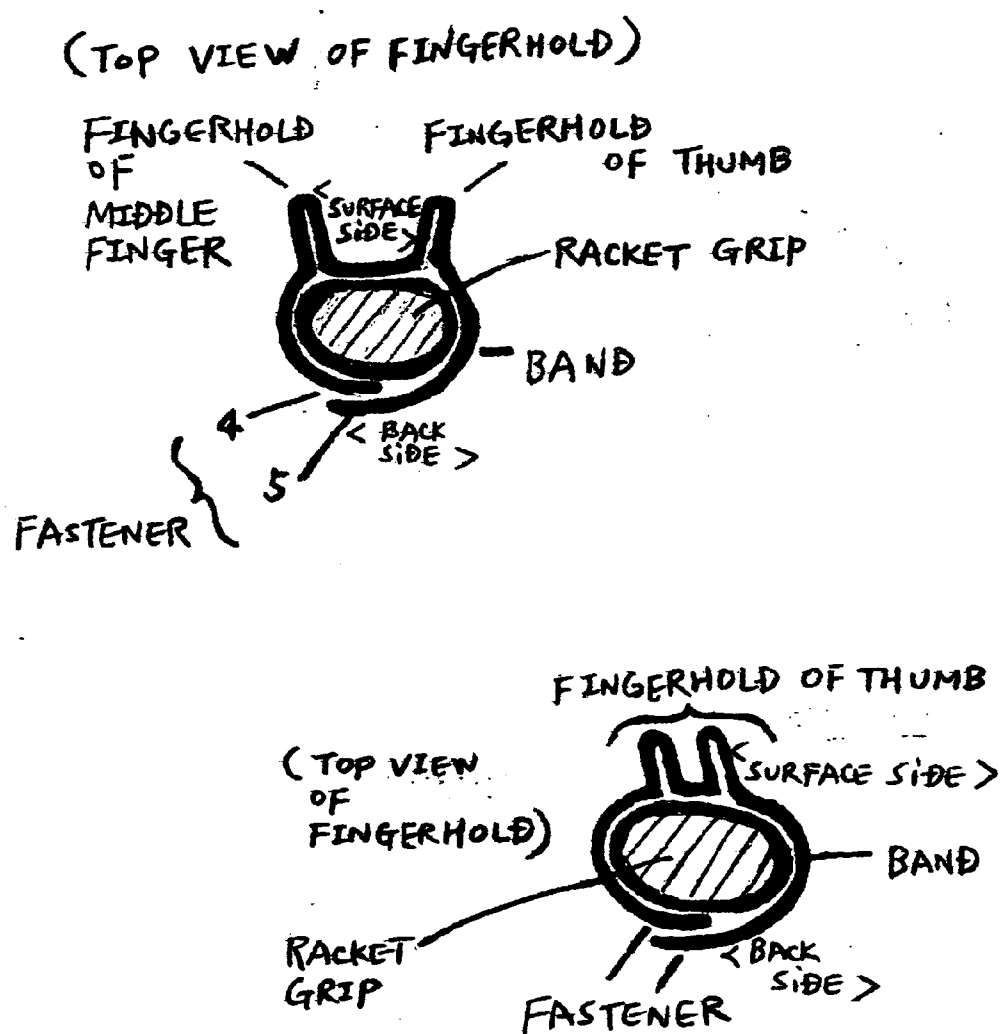 (TOP VIEW OF FINGERHOLD)
FINGERHOLD
OF
MIDDLE
FINGER
FINGERHOLD
OF THUMB
<
SURFACE
SiDE>
RACKET GRIP
BAND
4
5
< BACK
SiDE >
FASTENER
FINGERHOLD OF THUMB
(TOP VIEW
OF
FINGERHOLD)
<
SURFACE SiDE >
BAND
RACKET
GRIP
< BACK
SiDE >
FASTENER